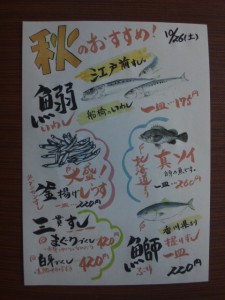 秋のおすすめ!
10/26(土)
江戸前すし
鰯
いわし
船橋のいわし
一皿175円
大盛!
釜揚げしらす
一皿220円
北海道の真ソイ
一皿260円
三貫すし
まぐろづくし
420円
白身づくし
420円
香川県より
鰤
ぶり
握りすし
一皿220円